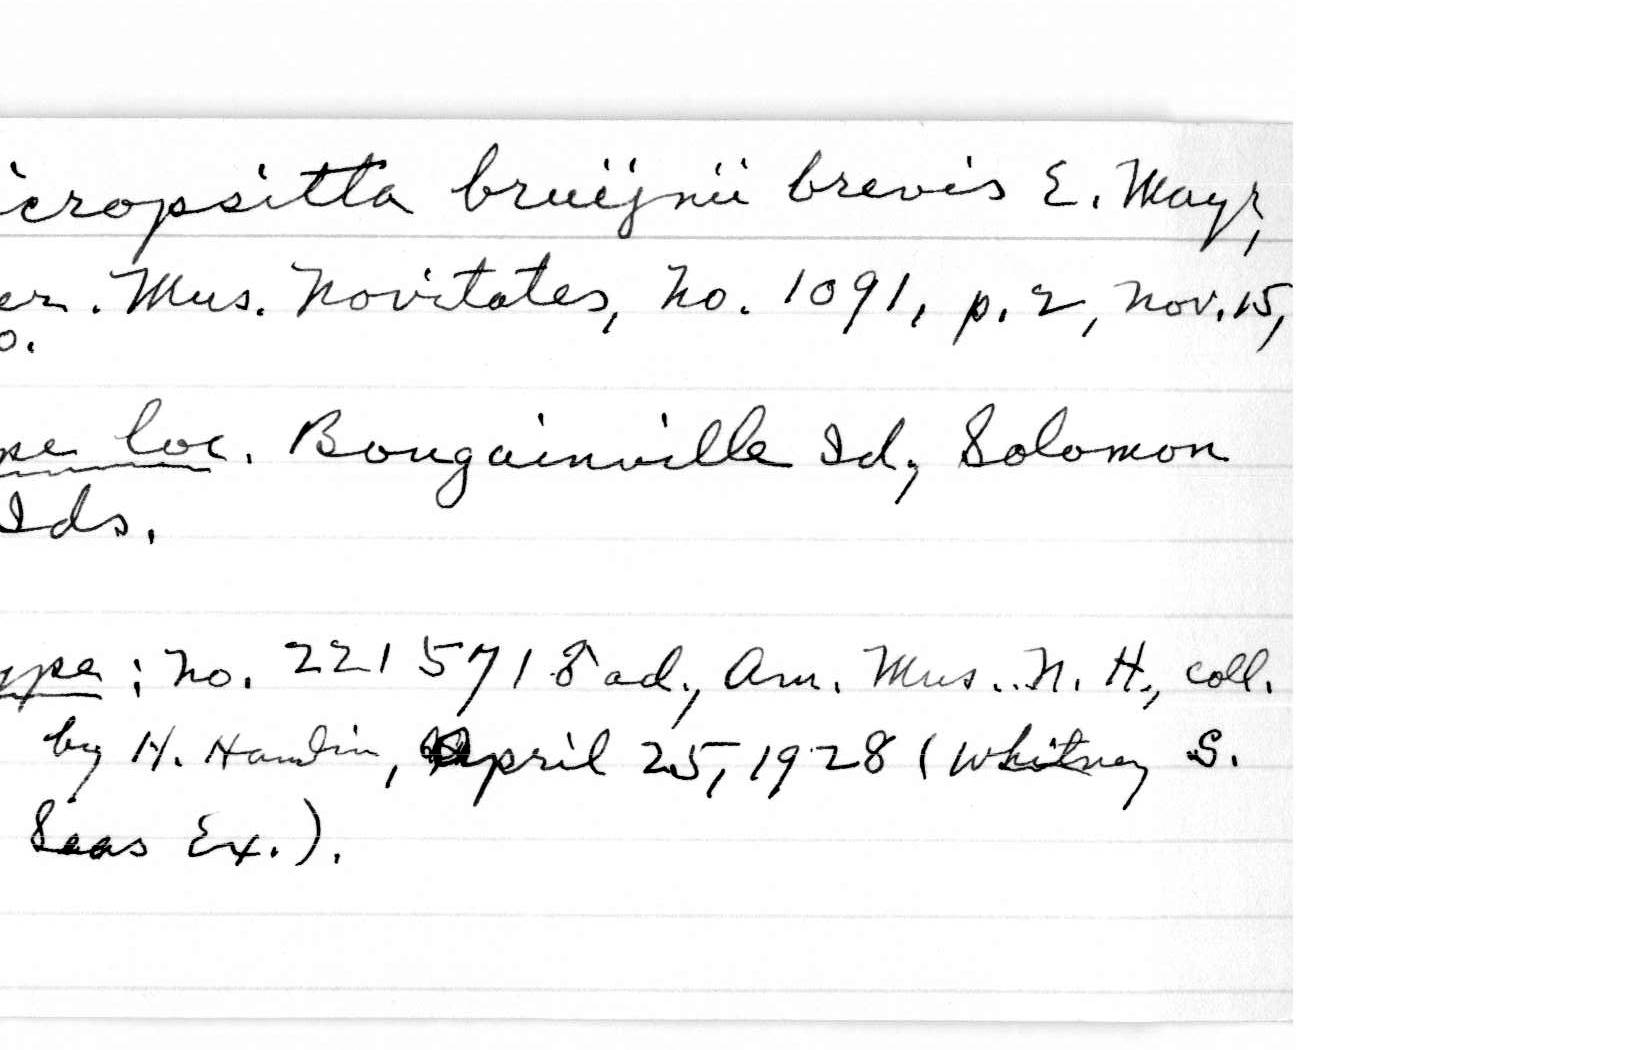 icropsitta bruijnii brevis E. Mayr,
er. Mus. Novitates, No. 1091, p. 2, Nov. 15,
0.
pe loc. Bougainville Id, Solomon
Ids.
ype; No. 221571 ♂ ad., Am. Mus. N. H., coll.
by H. Hamlin, April 25, 1928 (Whitney S.
Seas Ex.).